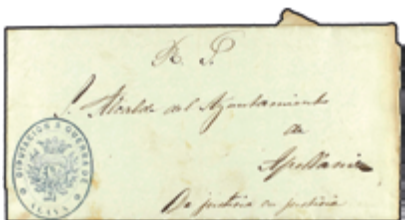 R. S.
S. Alcalde del Ayuntamiento
de
Apellaniz
De justicia en justicia
DIPUTACION A GUERRA DE
ALAVA